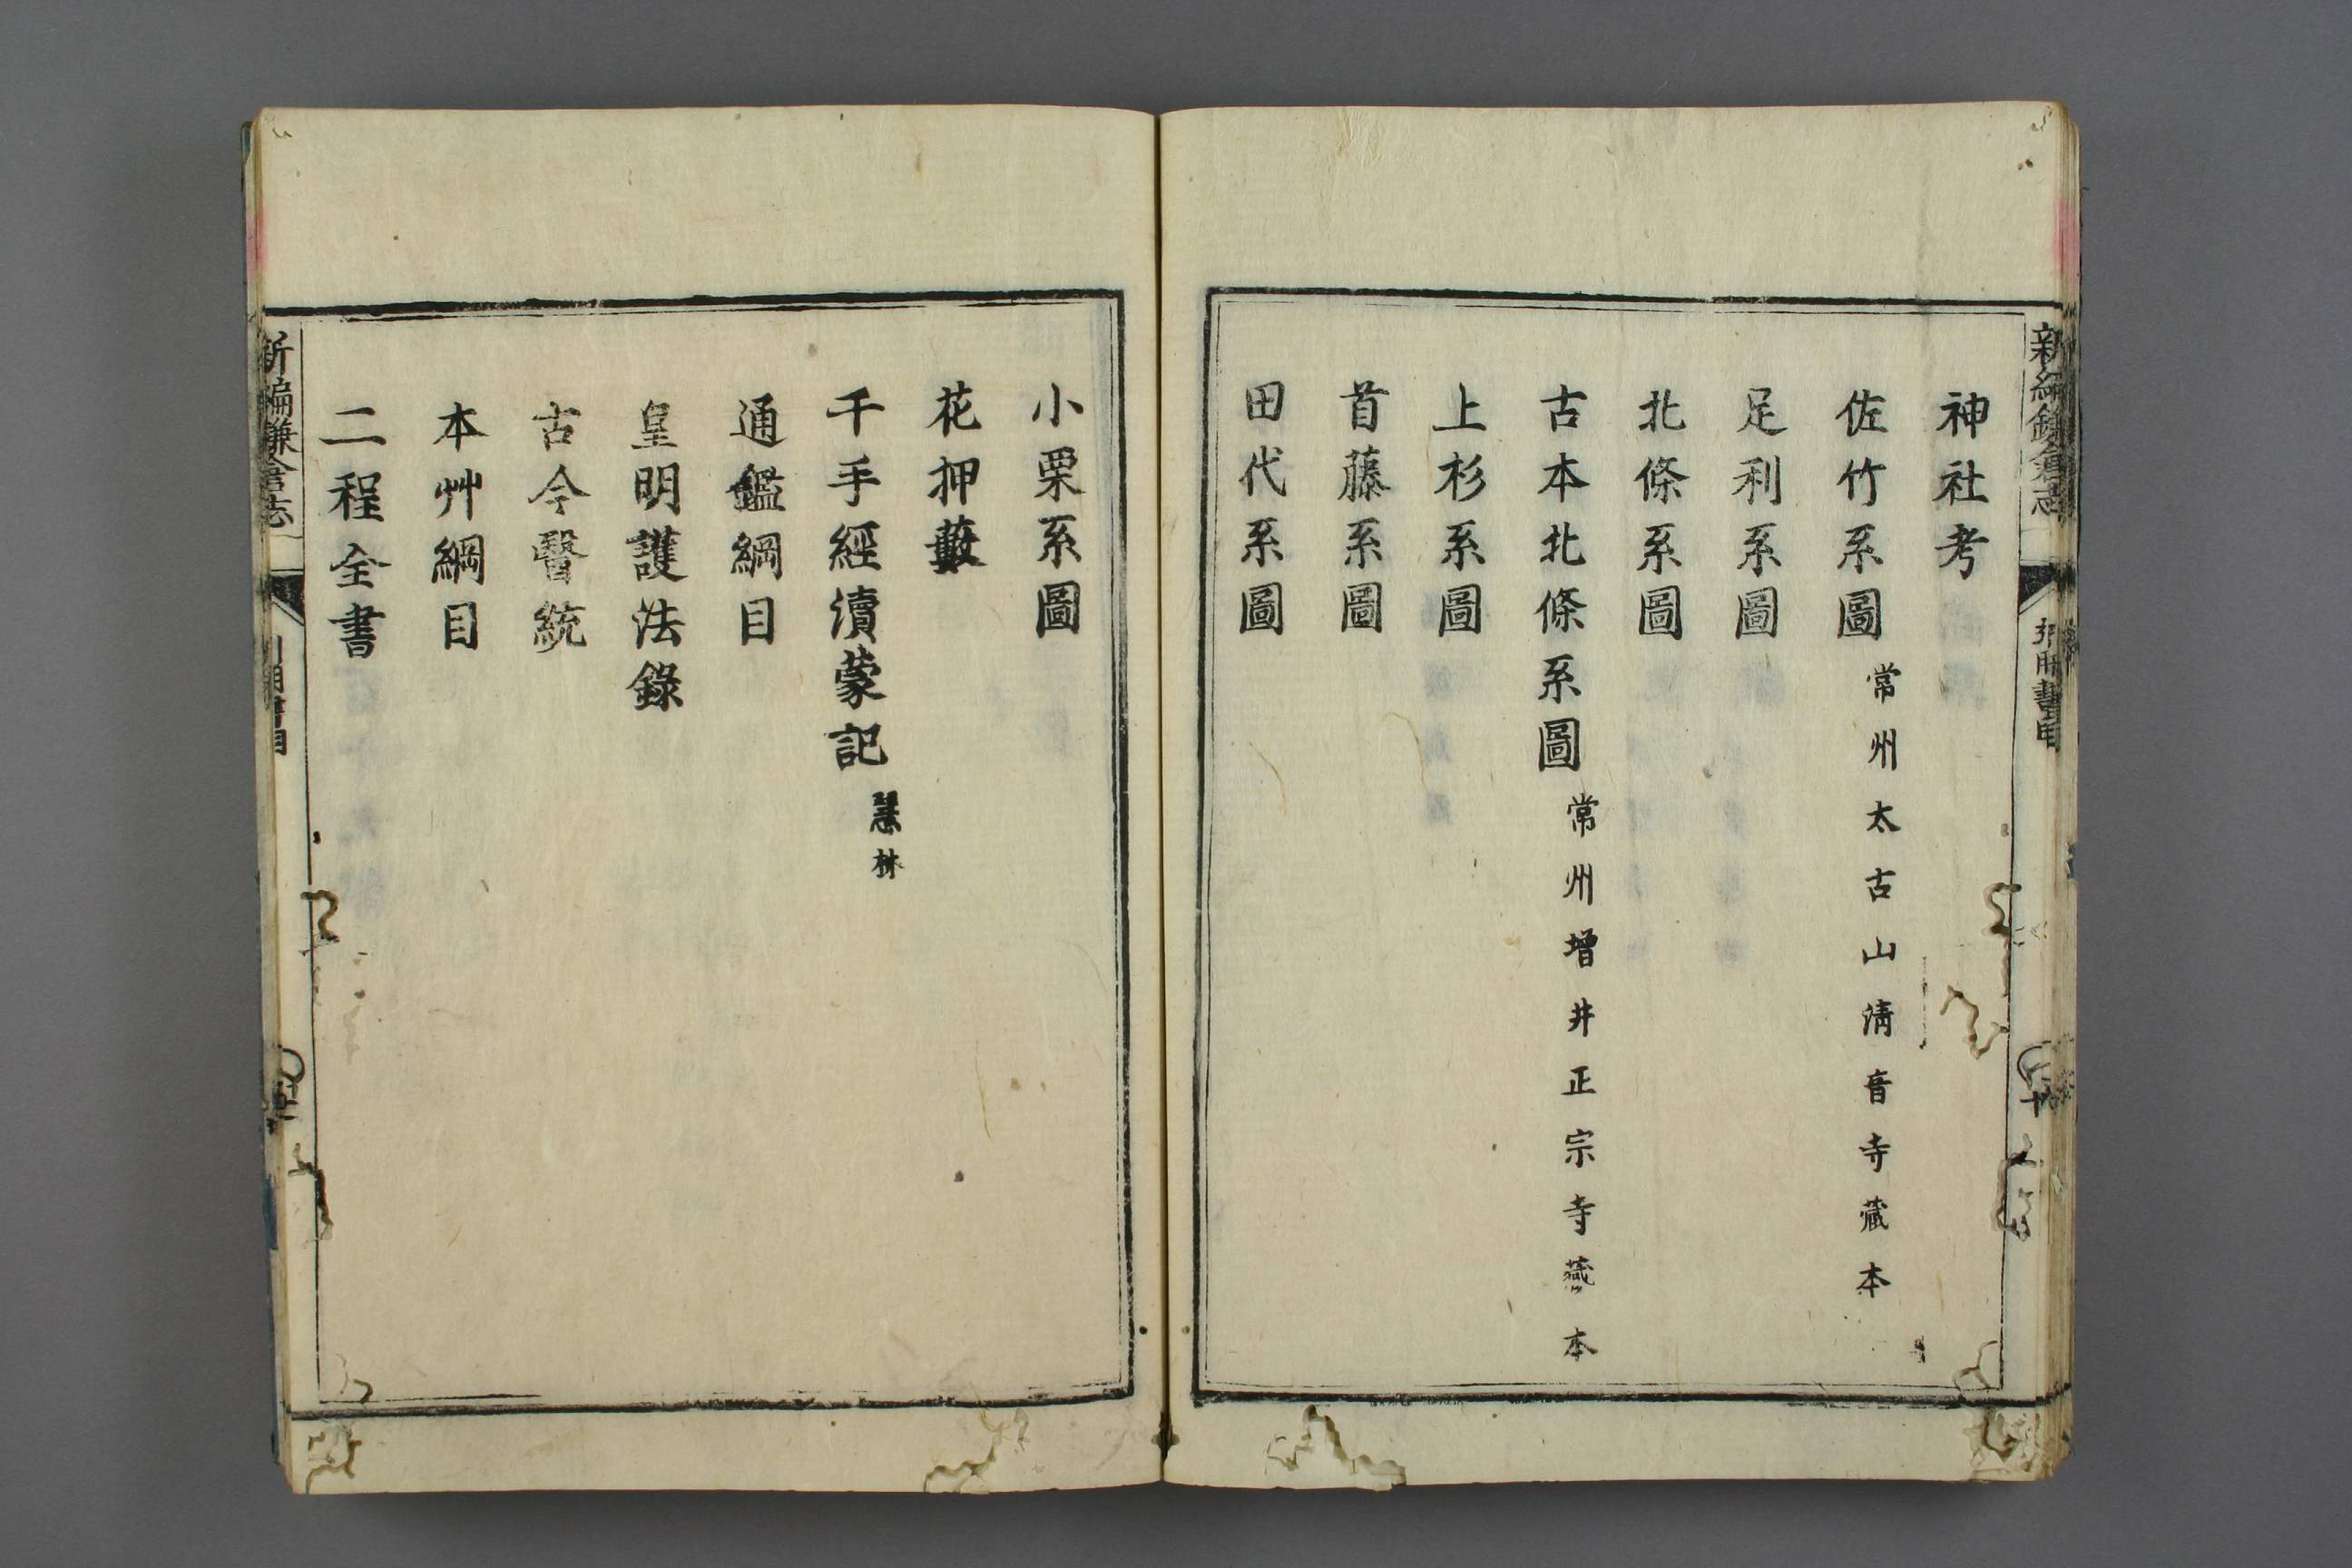 新編鎌倉志
引用書目
神社考
佐竹系圖 常州太古山淸音寺藏本
足利系圖
北條系圖
古本北條系圖 常州增井正宗寺藏本
上杉系圖
首藤系圖
田代系圖
小栗系圖
花押藪
千手經瀆蒙記 慧林
通鑑綱目
皇明護法錄
古今醫統
本艸綱目
二程全書
新編鎌倉志
引用書目